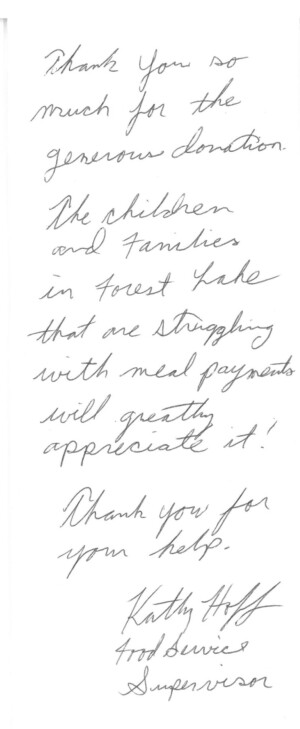 Thank you so
much for the
generous donation.
The children
and families
in Forest Lake
that are struggling
with meal payments
will greatly
appreciate it!
Thank you for
your help.
Kathy Hoff
Food Service
Supervisor